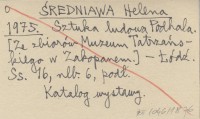 ŚREDNIAWA Helena
1975. Sztuka ludowa Podhala.
[Ze zbiorów Muzeum Tatrzań-
skiego w Zakopanem.] – Łódź.
Ss. 16, nlb. 6, podt.
Katalog wystawy.